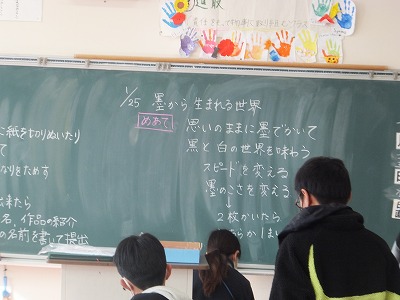 1/25 墨から生まれる世界
めあて 思いのままに墨でかいて
黒と白の世界を味わう
スピードを変える
墨のこさを変える
↓
2枚かいたら
に紙を切りぬいたり
て
なりをためす
出来たら
名、作品の紹介
の名前を書いて提出